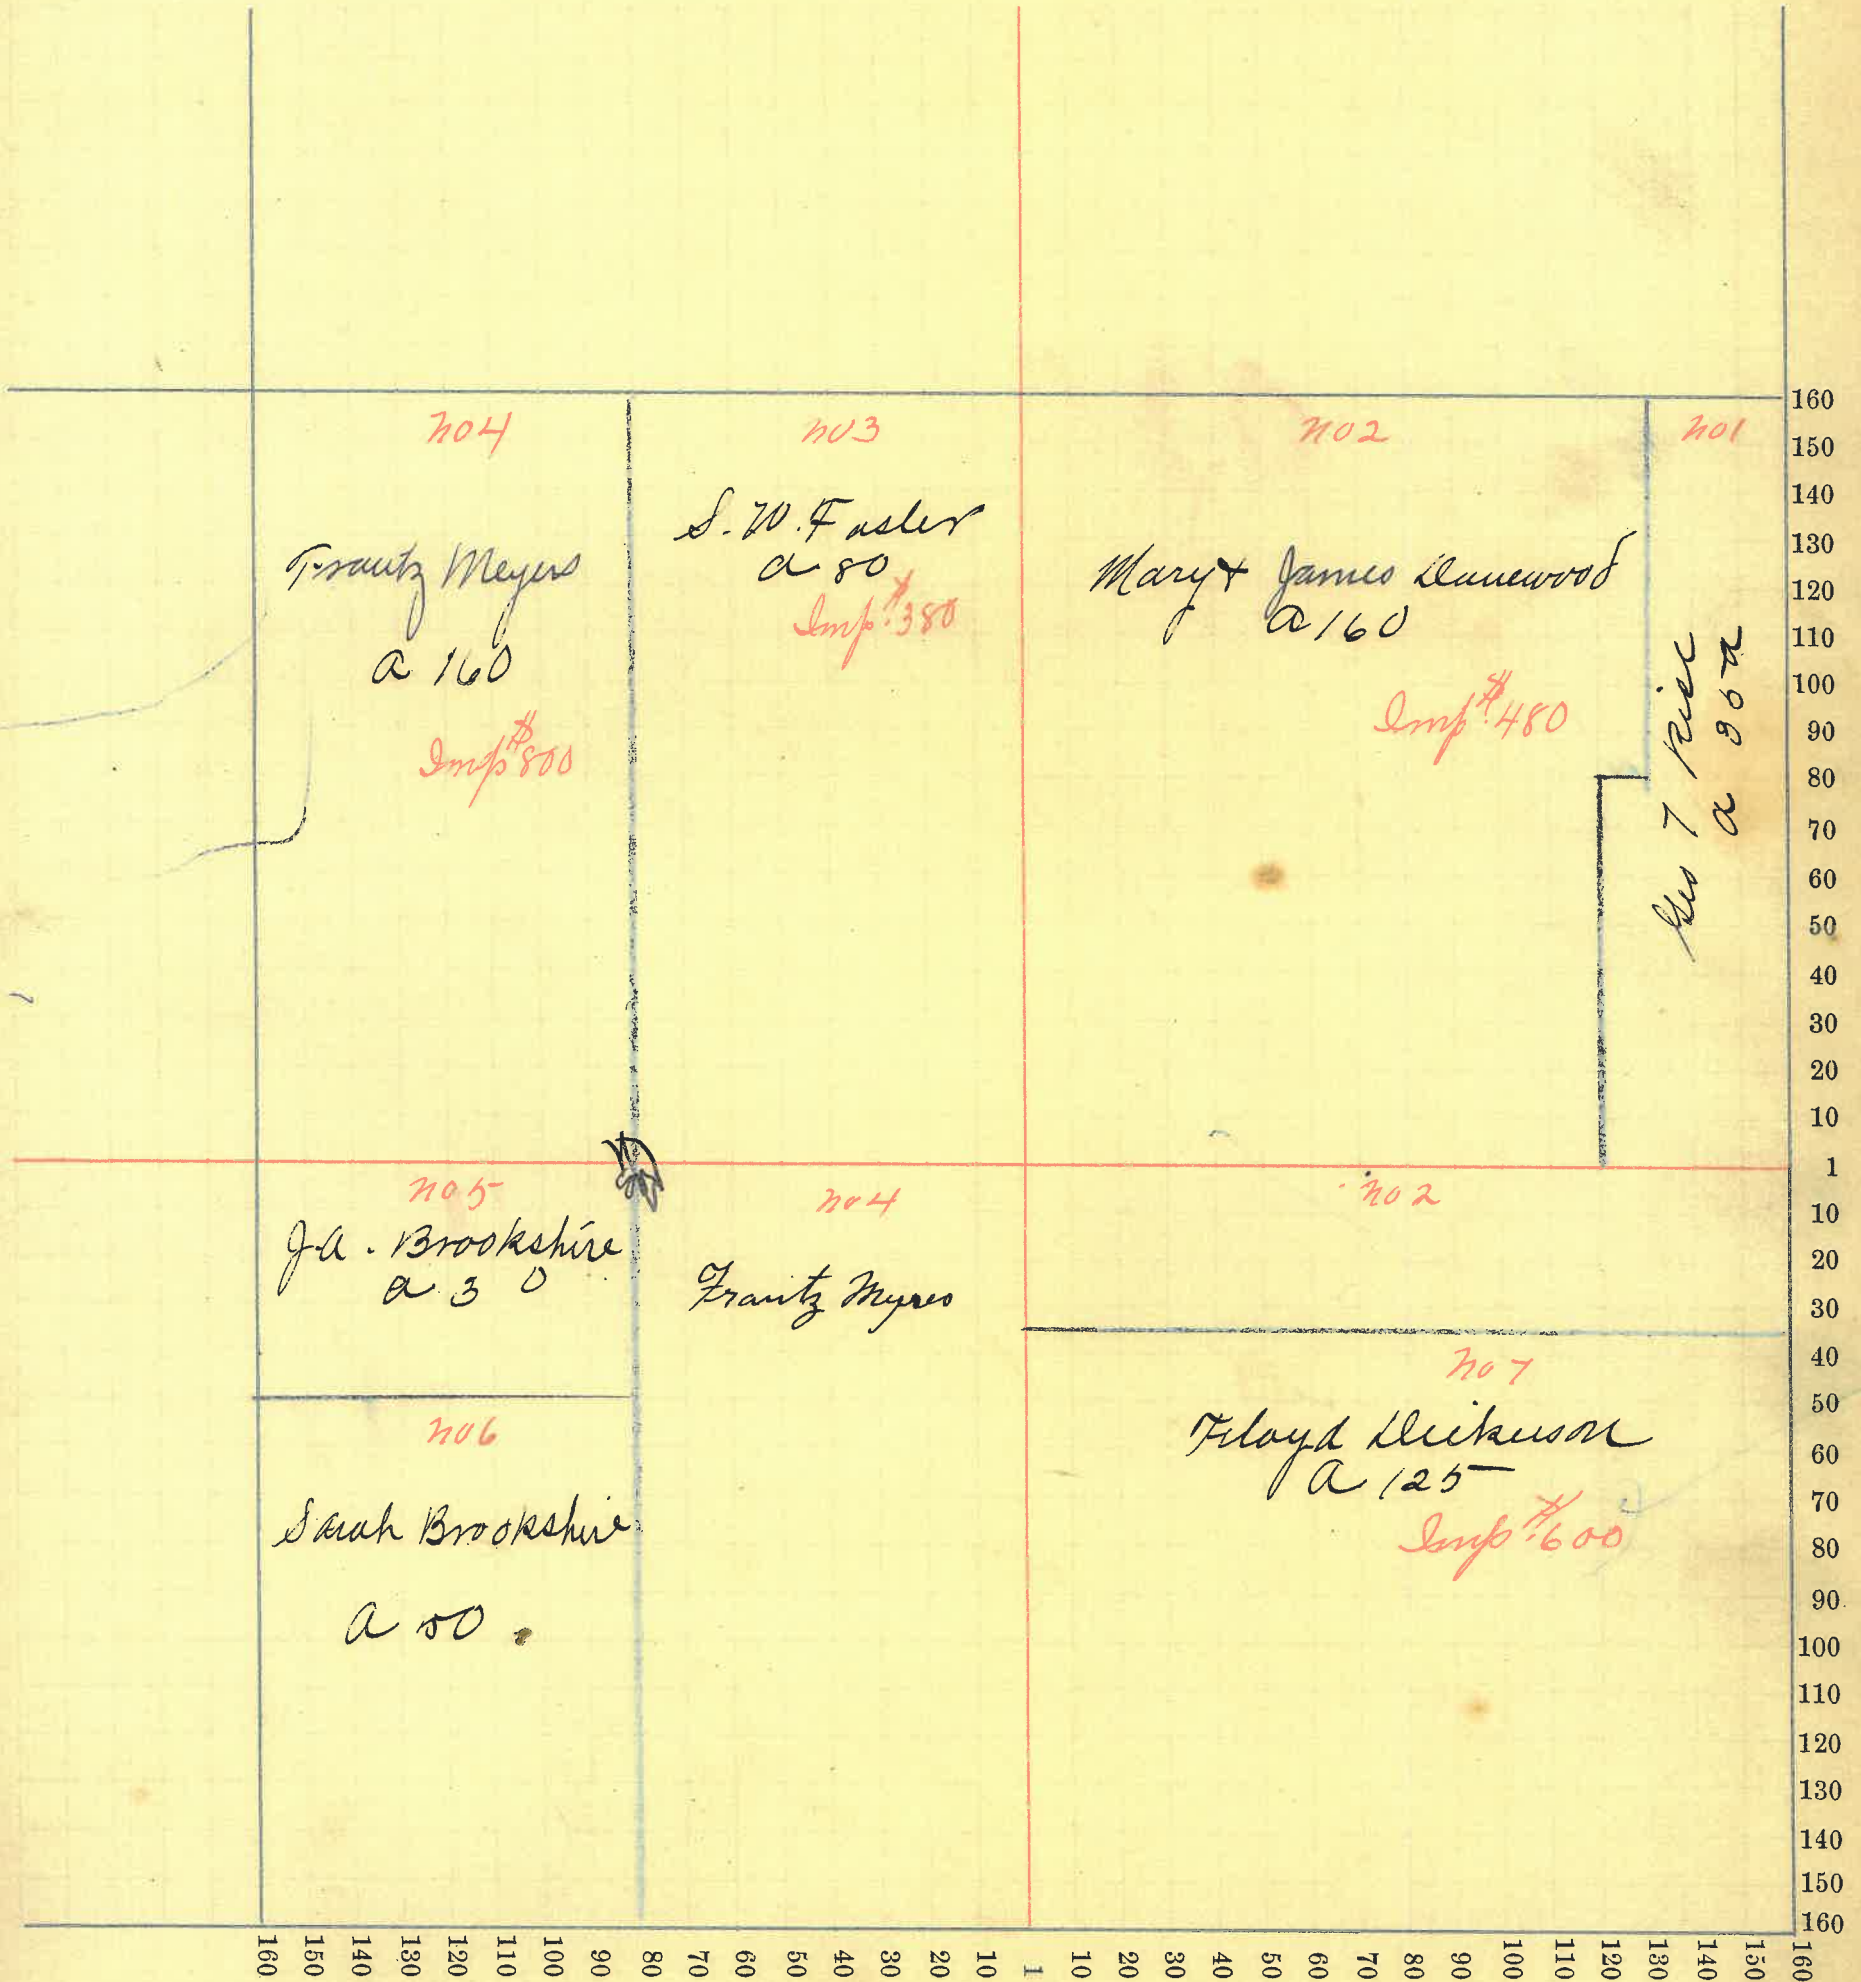 no 4
Frantz Meyers
a 160
Imp $800
no 3
S. W. Fasler
a 80
Imp. $380
no 2
Mary + James Danewood
a 160
Imp. $480
no 1
Geo T Rice
a
no 5
J. A. Brookshire
a 30
no 6
Sarah Brookshire
a 50
no 4
Frantz Myres
no 2
no 7
Floyd Dickerson
a 125
Imp. $600
160
150
140
130
120
110
100
90
80
70
60
50
40
30
20
10
1
10
20
30
40
50
60
70
80
90
100
110
120
130
140
150
160
160 150 140 130 120 110 100 90 80 70 60 50 40 30 20 10 1 10 20 30 40 50 60 70 80 90 100 110 120 130 140 150 160